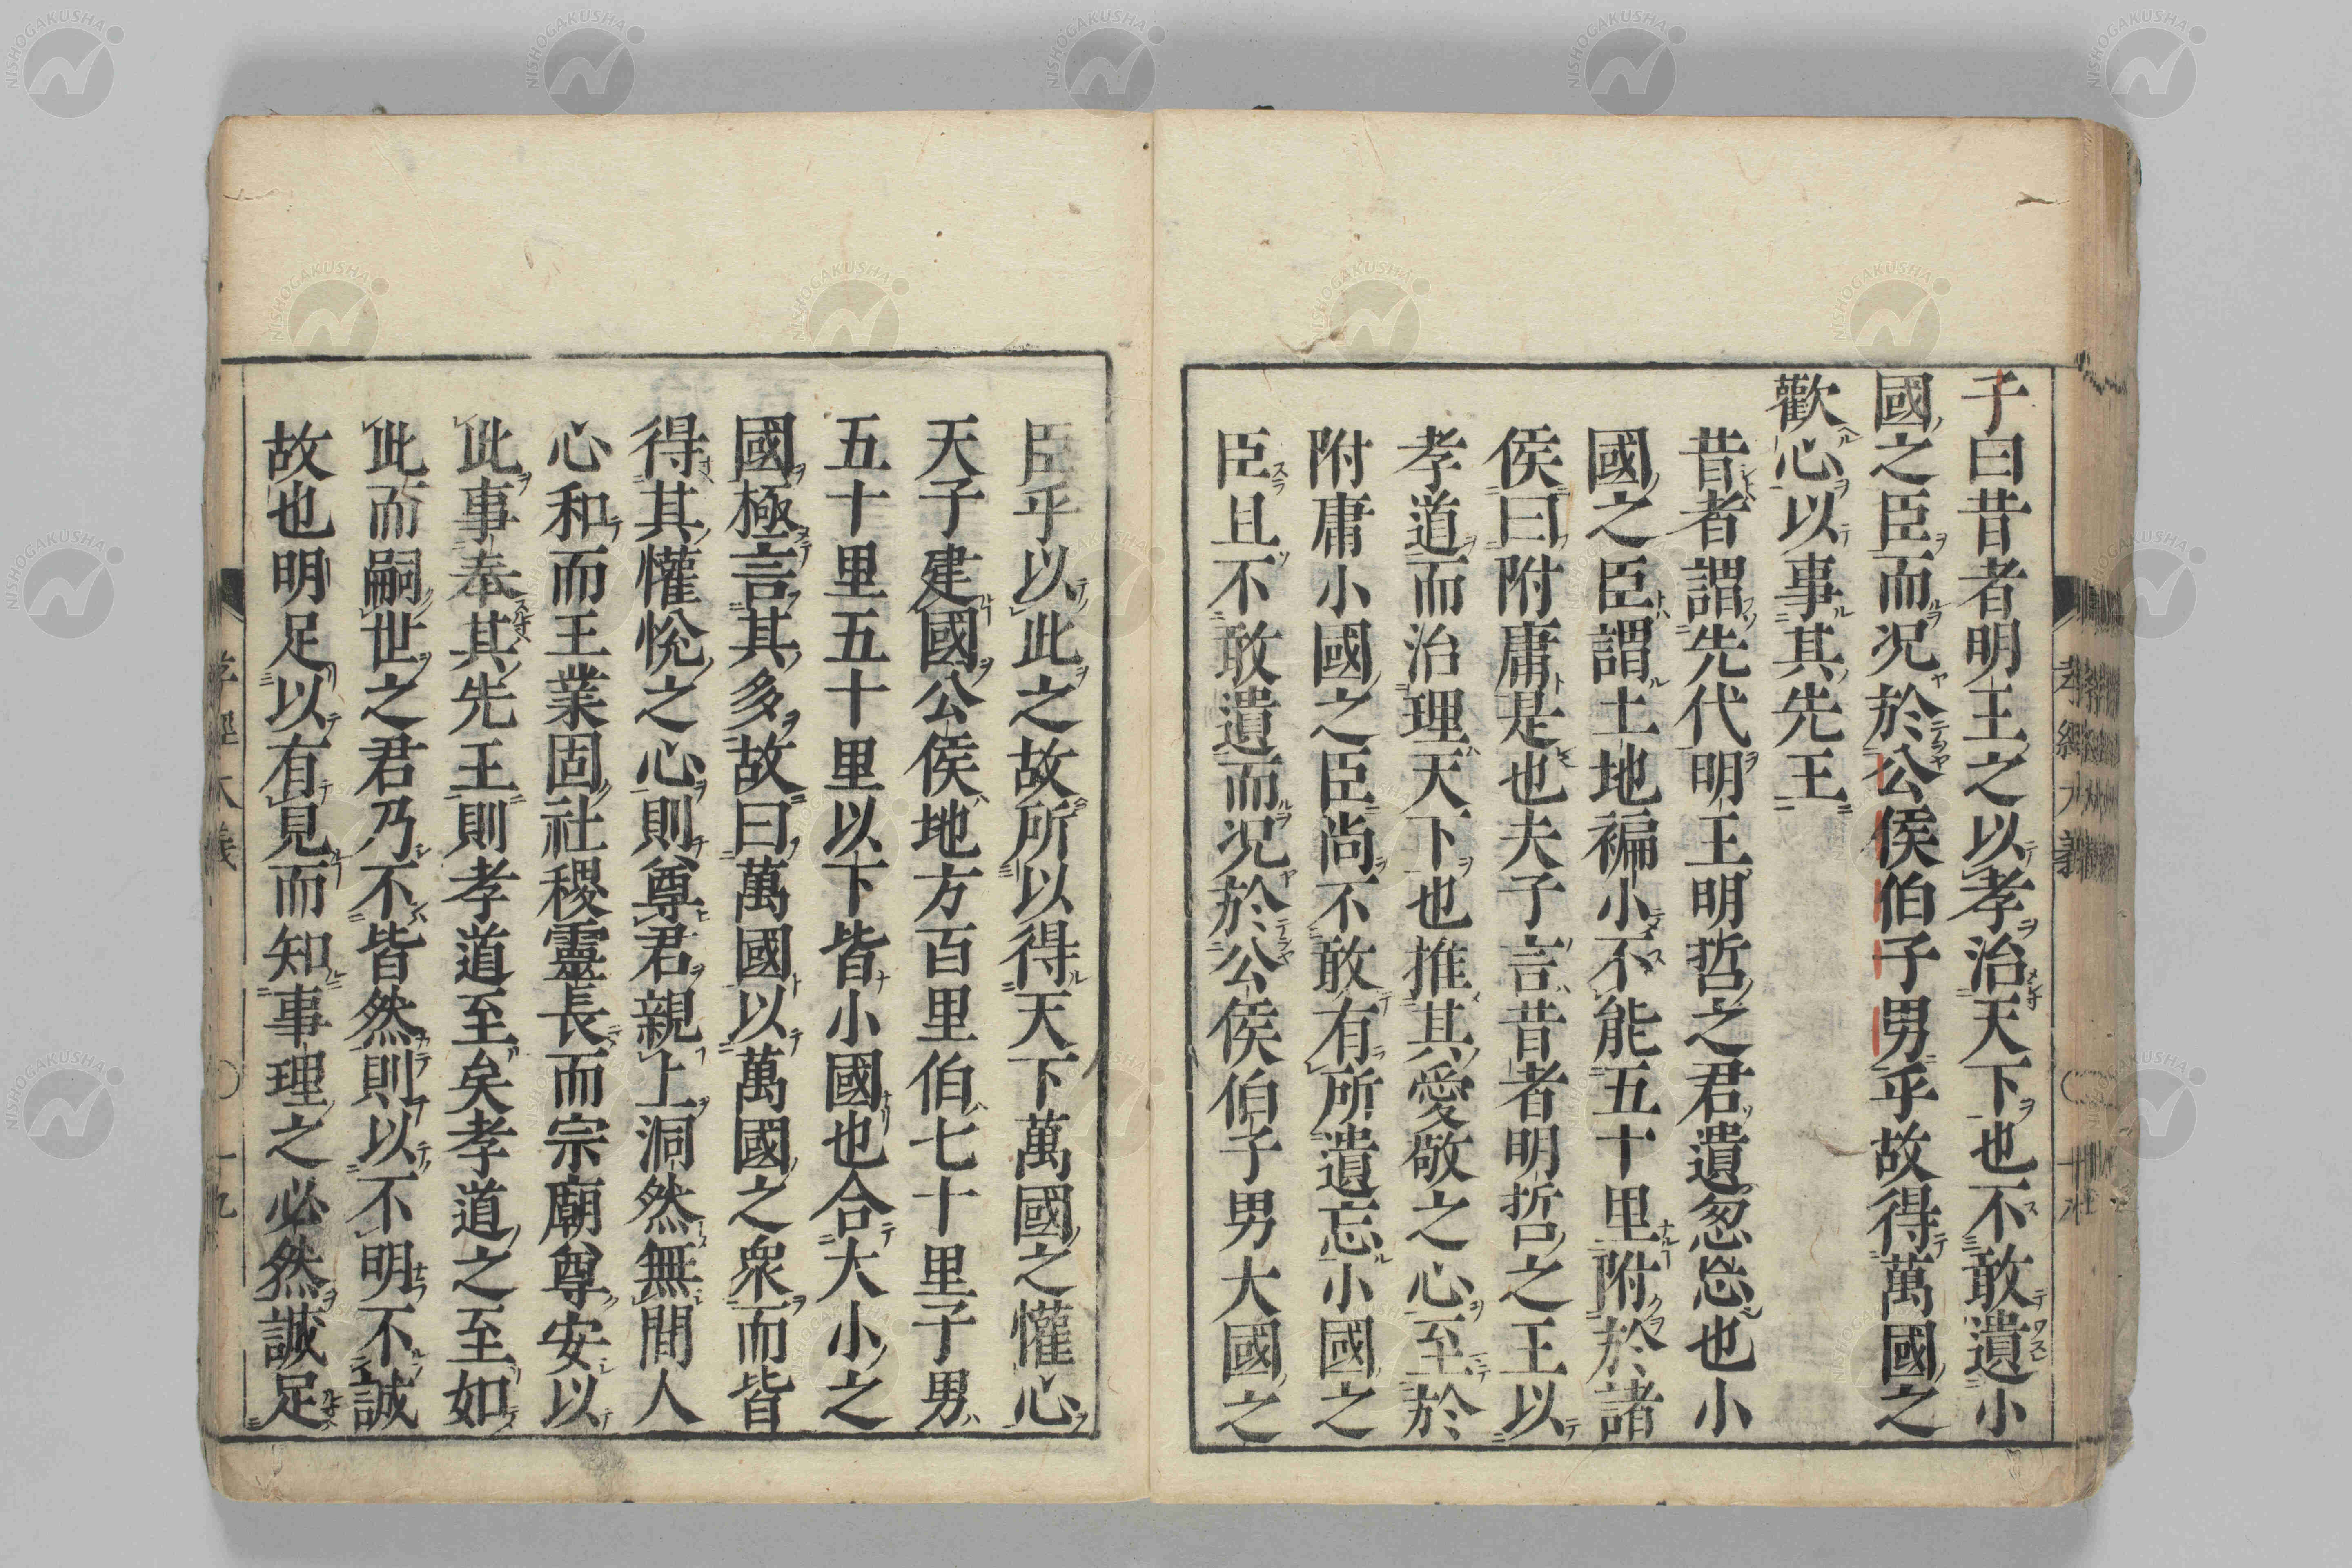 子曰昔者明王之以孝治天下也不敢遺小
國之臣而况於公侯伯子男乎故得萬國之
歡心以事其先王
昔者謂先代明王明哲之君遺忽忘也小
國之臣謂土地褊小不能五十里附於諸
侯曰附庸是也夫子言昔者明哲之王以
孝道而治理天下也推其愛敬之心至於
附庸小國之臣尚不敢有所遺忘小國之
臣且不敢遺而况於公侯伯子男大國之
臣乎以此之故所以得天下萬國之懽心
天子建國公侯地方百里伯七十里子男
五十里五十里以下皆小國也合大小之
國極言其多故曰萬國以萬國之衆而皆
得其懽悅之心則尊君親上洞然無間人
心和而王業固社稷靈長而宗廟尊安以
此事奉其先王則孝道至矣孝道之至如
此而嗣世之君乃不皆然則以不明不誠
故也明足以有見而知事理之必然誠足
孝經大義
十九
NISHOGAKUSHA